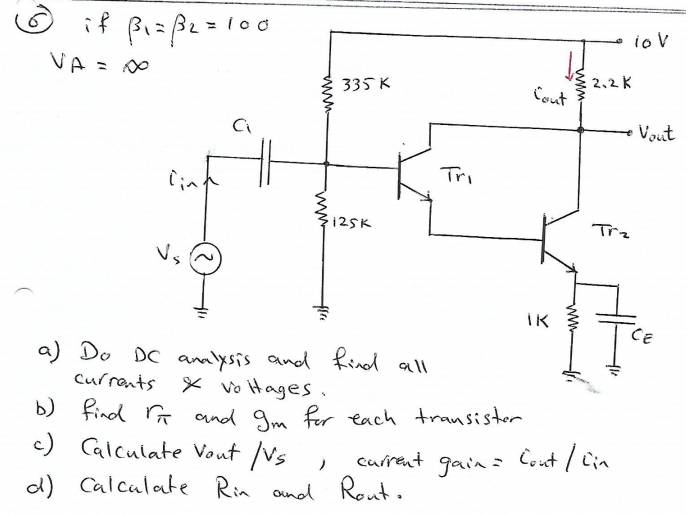 6 if β1 = β2 = 100
VA = ∞
10 V
335 K
2.2 K
iout
Vout
Ci
iin
Tr1
125K
Tr2
Vs
1K
CE
a) Do DC analysis and find all
currents & voltages.
b) find rπ and gm for each transistor
c) Calculate Vout /Vs , current gain = iout / iin
d) Calculate Rin and Rout.